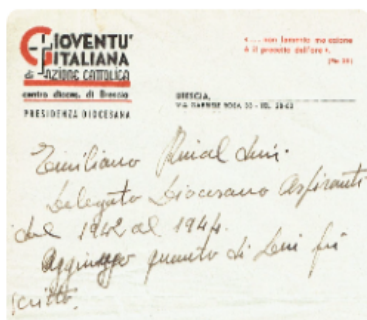 GIOVENTU'
ITALIANA
di AZIONE CATTOLICA
centro dioces. di Brescia
PRESIDENZA DIOCESANA
«... non lamento ma azione
è il precetto dell'ora».
BRESCIA,
VIA
Emiliano
Delegato Diocesano Aspiranti
dal 1942 al 1944.
Aggiungo quanto di Lui fu
scritto.